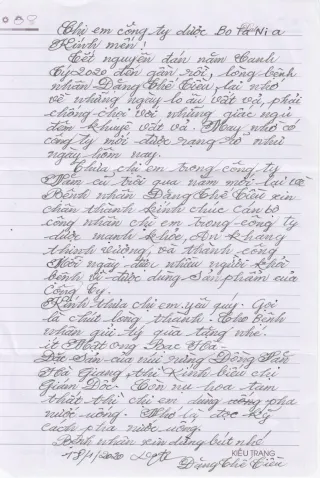 Chị em công ty dược Bo Ta Ni a
Kính mến!
Tết nguyên đán năm Canh
Tý 2020 đến gần rồi, lòng bệnh
nhân Đặng Chế Tiều, lại nhớ
về những ngày lo âu vất vả, phải
chống chọi với những giấc ngủ
đêm khuya vất vả. May nhờ có
công ty mới được rạng rỡ như
ngày hôm nay.
Thưa chị em trong công ty
Năm cũ trôi qua năm mới lại về
Bệnh nhân Đặng Chế Tiều xin
chân thành kính chúc cán bộ
công nhân chị em trong công ty
được mạnh khỏe, An khang
thịnh vượng, và thành công
Mỗi ngày được nhiều người khỏi
bệnh vì được dùng sản phẩm của
Công ty.
Kính thưa chị em yêu quý. Gọi
là chút lòng thành. Cho bệnh
nhân gửi tý quà tặng nhé.
ít Mật ong Bạc Hà
Đặc sản của núi rừng Đồng Văn
Hà Giang thì Kính biếu chị
Giám Đốc. Còn nụ hoa tam
thất thì chị em dùng pha
nước uống. Nhớ là đọc kỹ
cách pha nước uống.
Bệnh nhân xin dừng bút nhé
18/1/2020
KIỀU TRANG
Đặng Chế Tiều